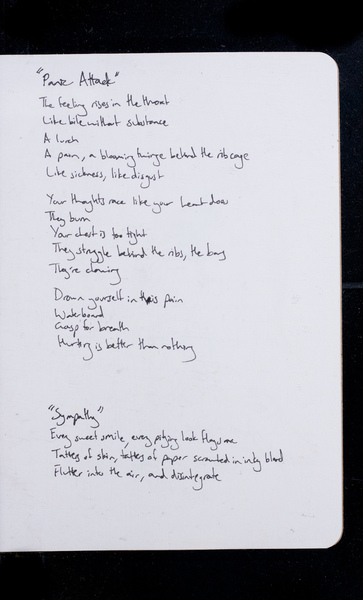 "Panic Attack"
The feeling rises in the throat
Like bile without substance
A lurch
A pain, a blooming twinge behind the ribcage
Like sickness, like disgust
Your thoughts race like your heart does
They burn
Your chest is too tight
They struggle behind the ribs, the bars
They're clawing
Drown yourself in this pain
Waterboard
Gasp for breath
Hurting is better than nothing
"Sympathy"
Every sweet smile, every pitying look flays me
Tatters of skin, tatters of paper scrawled in inky blood
Flutter into the air, and disintegrate